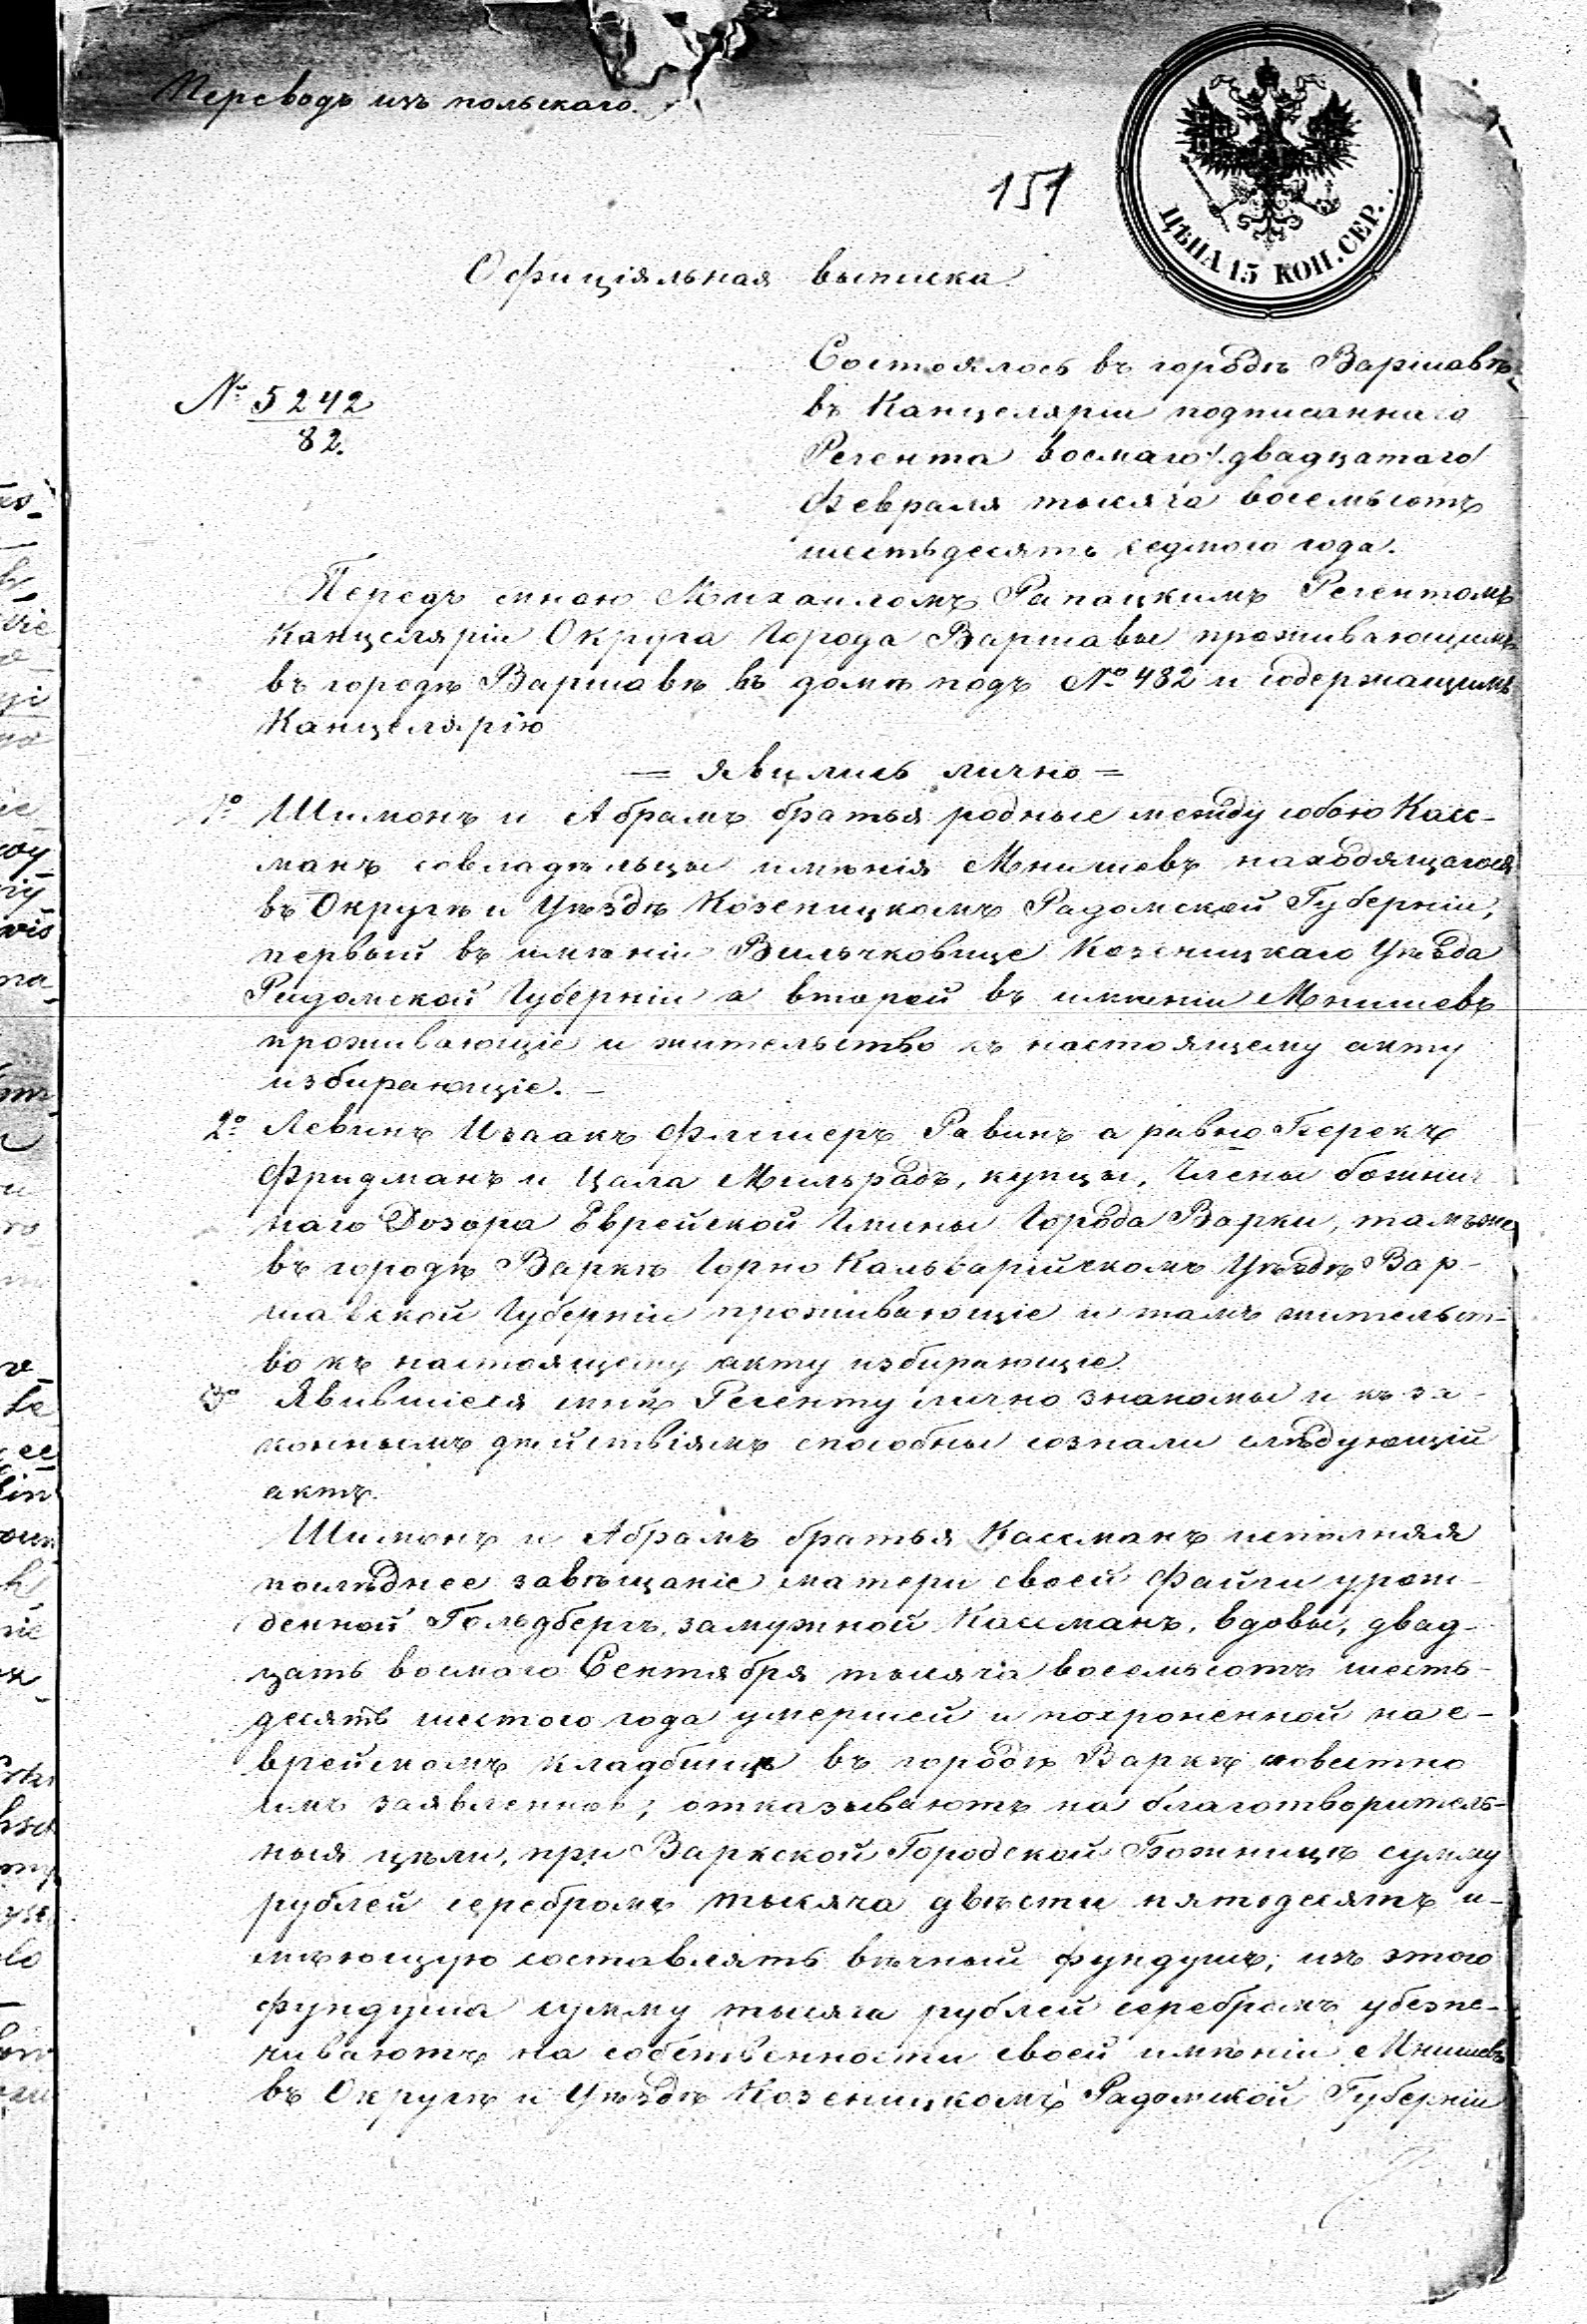 Переводъ изъ польскаго.
151
ЦѢНА 15 КОП. СЕР.
Офиціяльная выписка
Состоялось въ городѣ Варшавѣ
№ 5242
82.
въ Канцеляріи подписаннаго
Регента восмаго/двадцатаго
Февраля тысяча восемьсотъ
шестьдесятъ седмого года.
Передъ мною Михаиломъ Рапацкимъ Регентомъ
Канцеляріи Округа Города Варшавы проживающимъ
въ городѣ Варшавѣ въ домѣ подъ № 482 и содержащимъ
Канцелярію
= явились лично =
1º Шимонъ и Абрамъ братья родные между собою Касс-
манъ совладѣльцы имѣнія Мнишевъ находящагося
въ Округѣ и Уѣздѣ Козеницкомъ Радомской Губерніи,
первый въ имѣніи Вильчковице Козеницкаго Уѣзда
Радомской Губерніи а второй въ имѣніи Мнишевъ
проживающіе и жительство къ настоящему акту
избирающіе. –
2º Левинъ Изаакъ Флешеръ Равинъ а равно Берекъ
Фридманъ и Цала Мильрадъ, купцы, Члены божнич
наго Дозора Еврейской Гмины Города Варки, тамъже
въ городѣ Варкѣ Горно Кальварійскомъ Уѣздѣ Вар-
шавской Губерніи проживающіе и тамъ жительст-
во къ настоящему акту избирающіе.
3º Явившіеся мнѣ Регенту лично знакомы и къ за-
коннымъ дѣйствіямъ способны сознали слѣдующій
актъ.
Шимонъ и Абрамъ братья Кассманъ исполняя
послѣднее завѣщаніе матери своей Файги урож-
денной Гольдбергъ, замужной Кассманъ, вдовы, двад-
цать восмого Сентября тысяча восемьсотъ шесть-
десять шестого года умершей и похороненной на е-
врейскомъ кладбищѣ въ городѣ Варкѣ словестно
имъ заявленное; отказываютъ на благотворитель-
ныя цѣли, при Варкской Городской Божницѣ сумму
рублей серебромъ тысяча двѣсти пятьдесятъ и-
мѣющую составлять вѣчный фундушъ; изъ этого
фундуша сумму тысяча рублей серебромъ убезпе-
чиваютъ на собственности своей имѣніи Мнишевъ
въ Округѣ и Уѣздѣ Козеницкомъ Радомской Губерніи